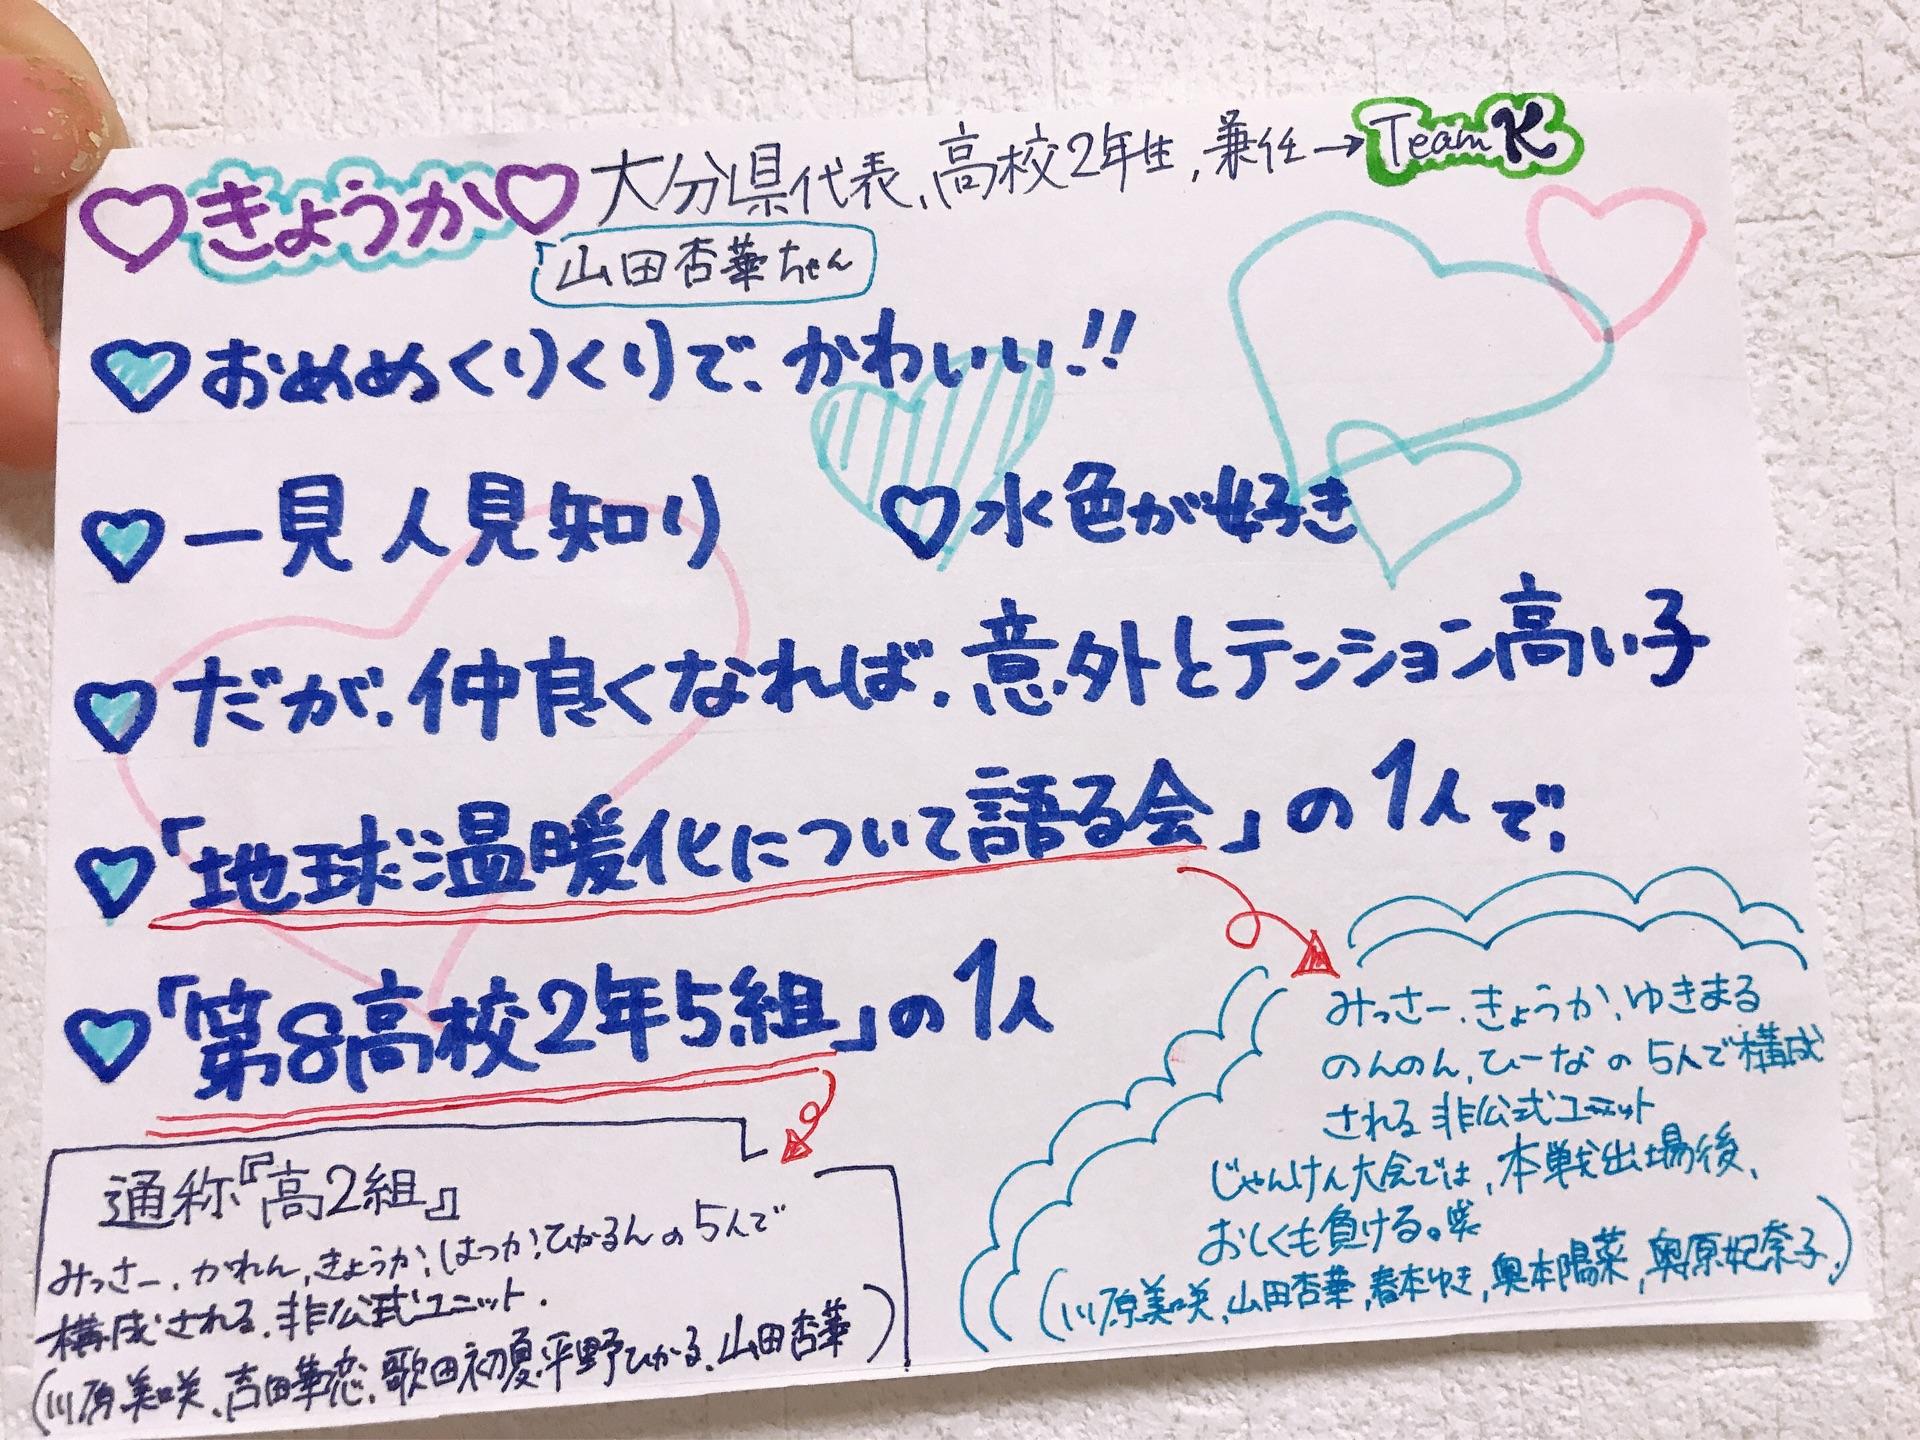 ♡きょうか♡ 大分県代表、高校2年生、兼任→Team K
山田杏華ちゃん
♡おめめくりくりで、かわいい!!
♡一見人見知り ♡水色が好き
♡だが、仲良くなれば、意外とテンション高い子
♡「地球温暖化について語る会」の1人で、
♡「第8高校2年5組」の1人
通称『高2組』
みっさー、かれん、きょうか、はつか、ひかるんの5人で
構成される、非公式ユニット.
(川原美咲、吉田華恋、歌田初夏、平野ひかる、山田杏華)
みっさー、きょうか、ゆきまる
のんのん、ひーなの5人で構成
される非公式ユニット
じゃんけん大会では、本戦出場後、
おしくも負ける。笑
(川原美咲、山田杏華、春本ゆき、奥本陽菜、奥原妃奈子)